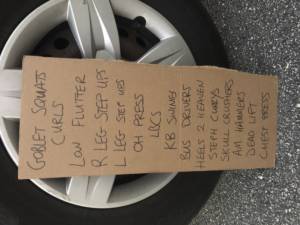 GOBLET SQUATS
CURLS
LOW FLUTTER
R LEG STEP UPS
L LEG STEP UPS
OH PRESS
LBCS
KB SWINGS
BUS DRIVERS
HEELS 2 HEAVEN
STEPH CURRYS
SKULL CRUSHERS
AM HAMMERS
DEAD LIFT
CHEST PRESS